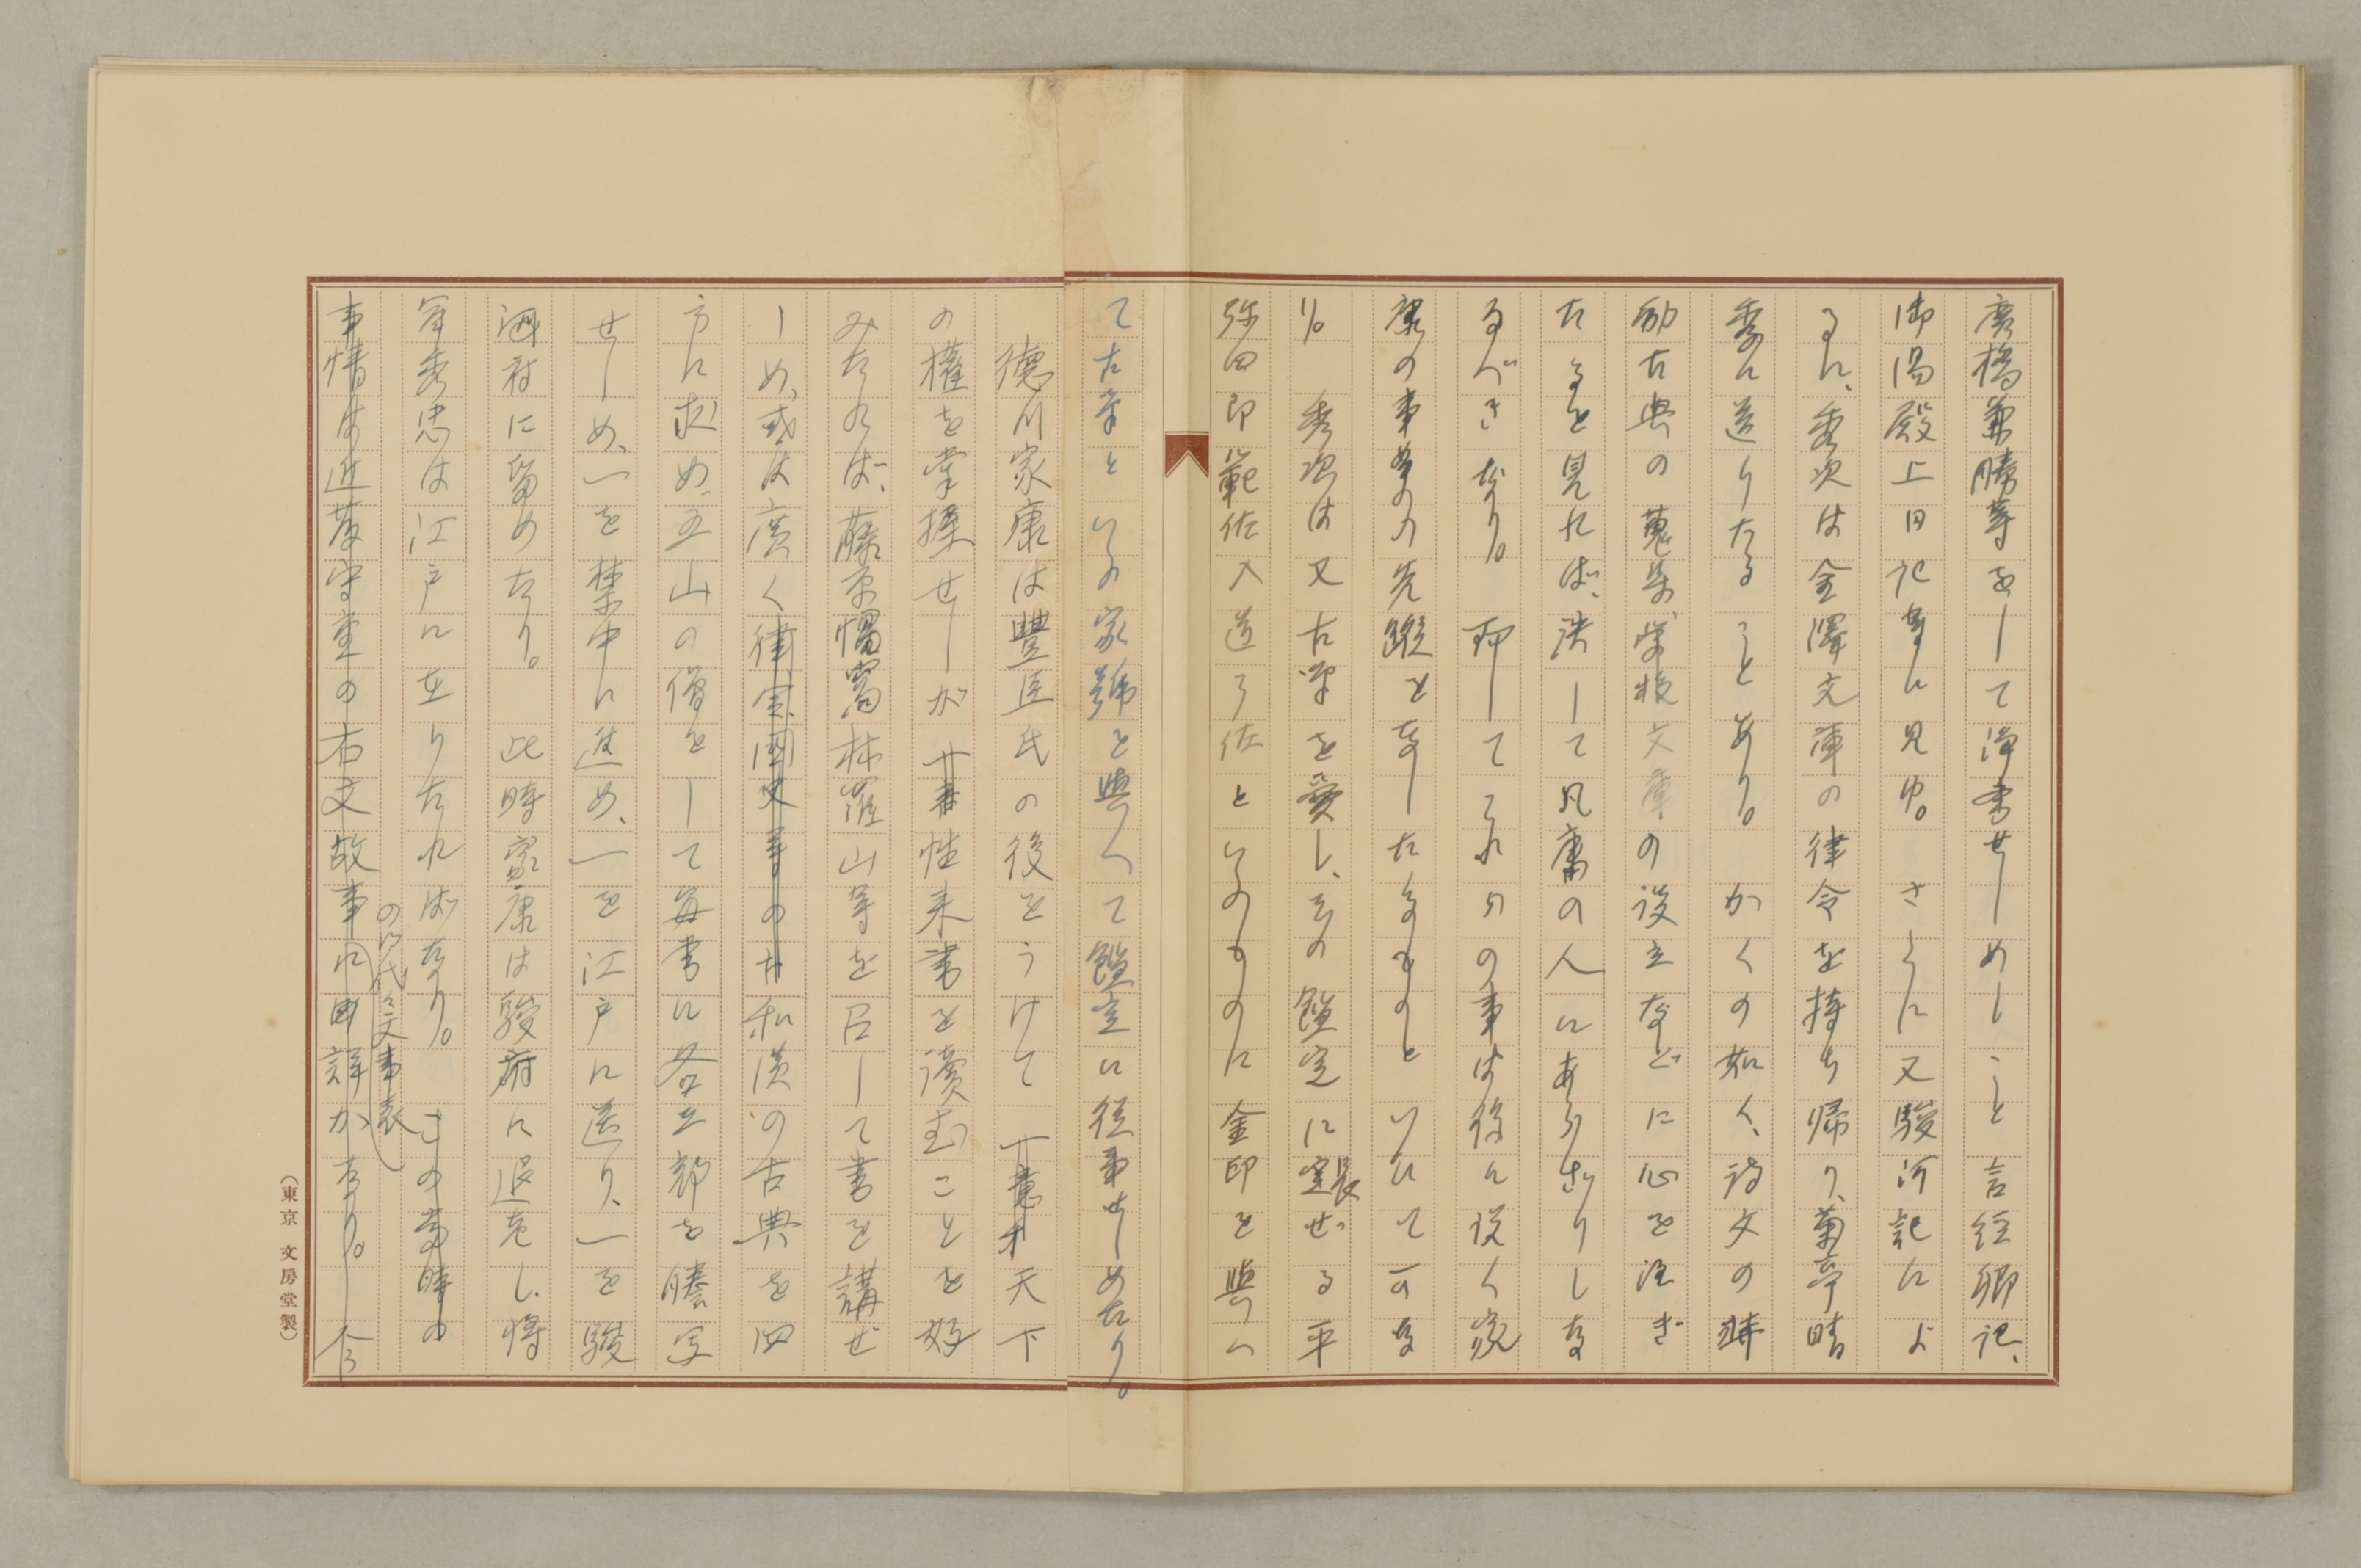 廣橋兼勝等をして淨書せしめしこと言経卿記、
御湯殿上日記等に見ゆ。さらに又駿河記によ
るに、秀次は金澤文庫の律令を持ち帰り、菊亭晴
季に送りたることあり。かくの如く、詩文の
励古典の蒐集、学校文庫の設立などに心を注ぎ
たるを見れば、決して凡庸の人にあらざりしな
るべきなり。而してこれらの事は後に説く家
康の事業の先蹤をなしたるものといひて可な
り。秀次は又古筆を愛し、その鑑定に長ぜる平
弥四郎範佐入道了佐といふものに金印を與へ
て古筆といふ家號を與へて鑑定に従事せしめたり。
徳川家康は豐臣氏の後をうけて天下
の權を掌握せしが性来書を讀むことを好
みたれば、藤原惺窩林羅山等を召して書を講ぜ
しめ、或は広く和漢の古典を四
方に求め、五山の僧をして毎書に各三部を謄写
せしめ、一を禁中に進め、一を江戸に送り、一を駿
府に留めたり。此時家康は駿府に退老し、将
軍秀忠は江戸に在りたればなり。この當時の
の御代々文事表
事情は近藤守重の右文故事に詳かなり。今
(東京 文房堂製)